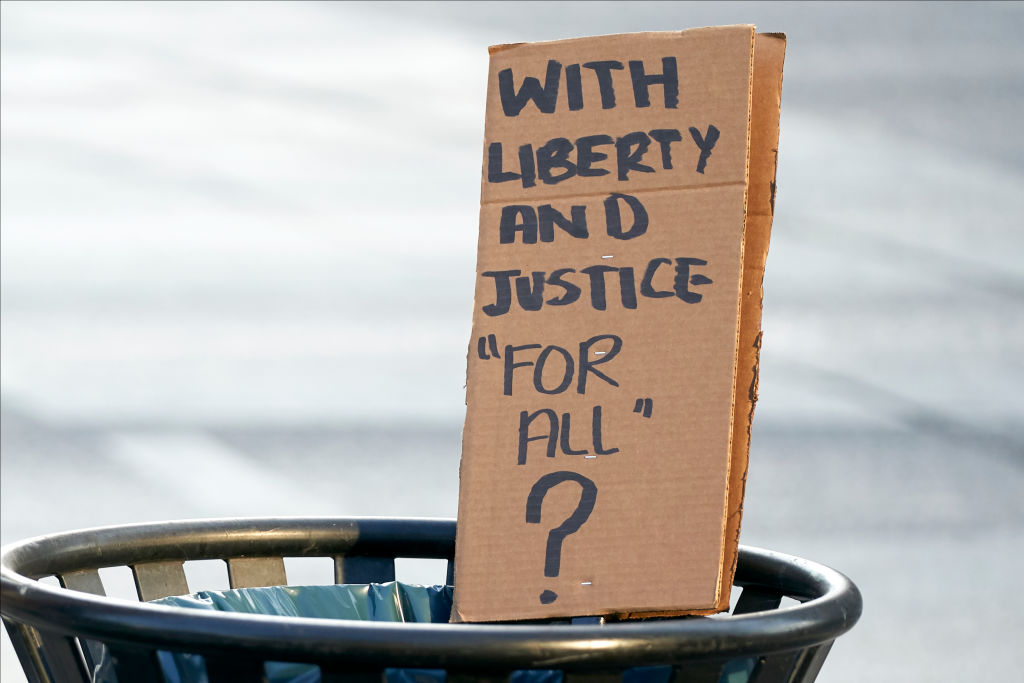 WITH
LIBERTY
AND
JUSTICE
"FOR
ALL"
?